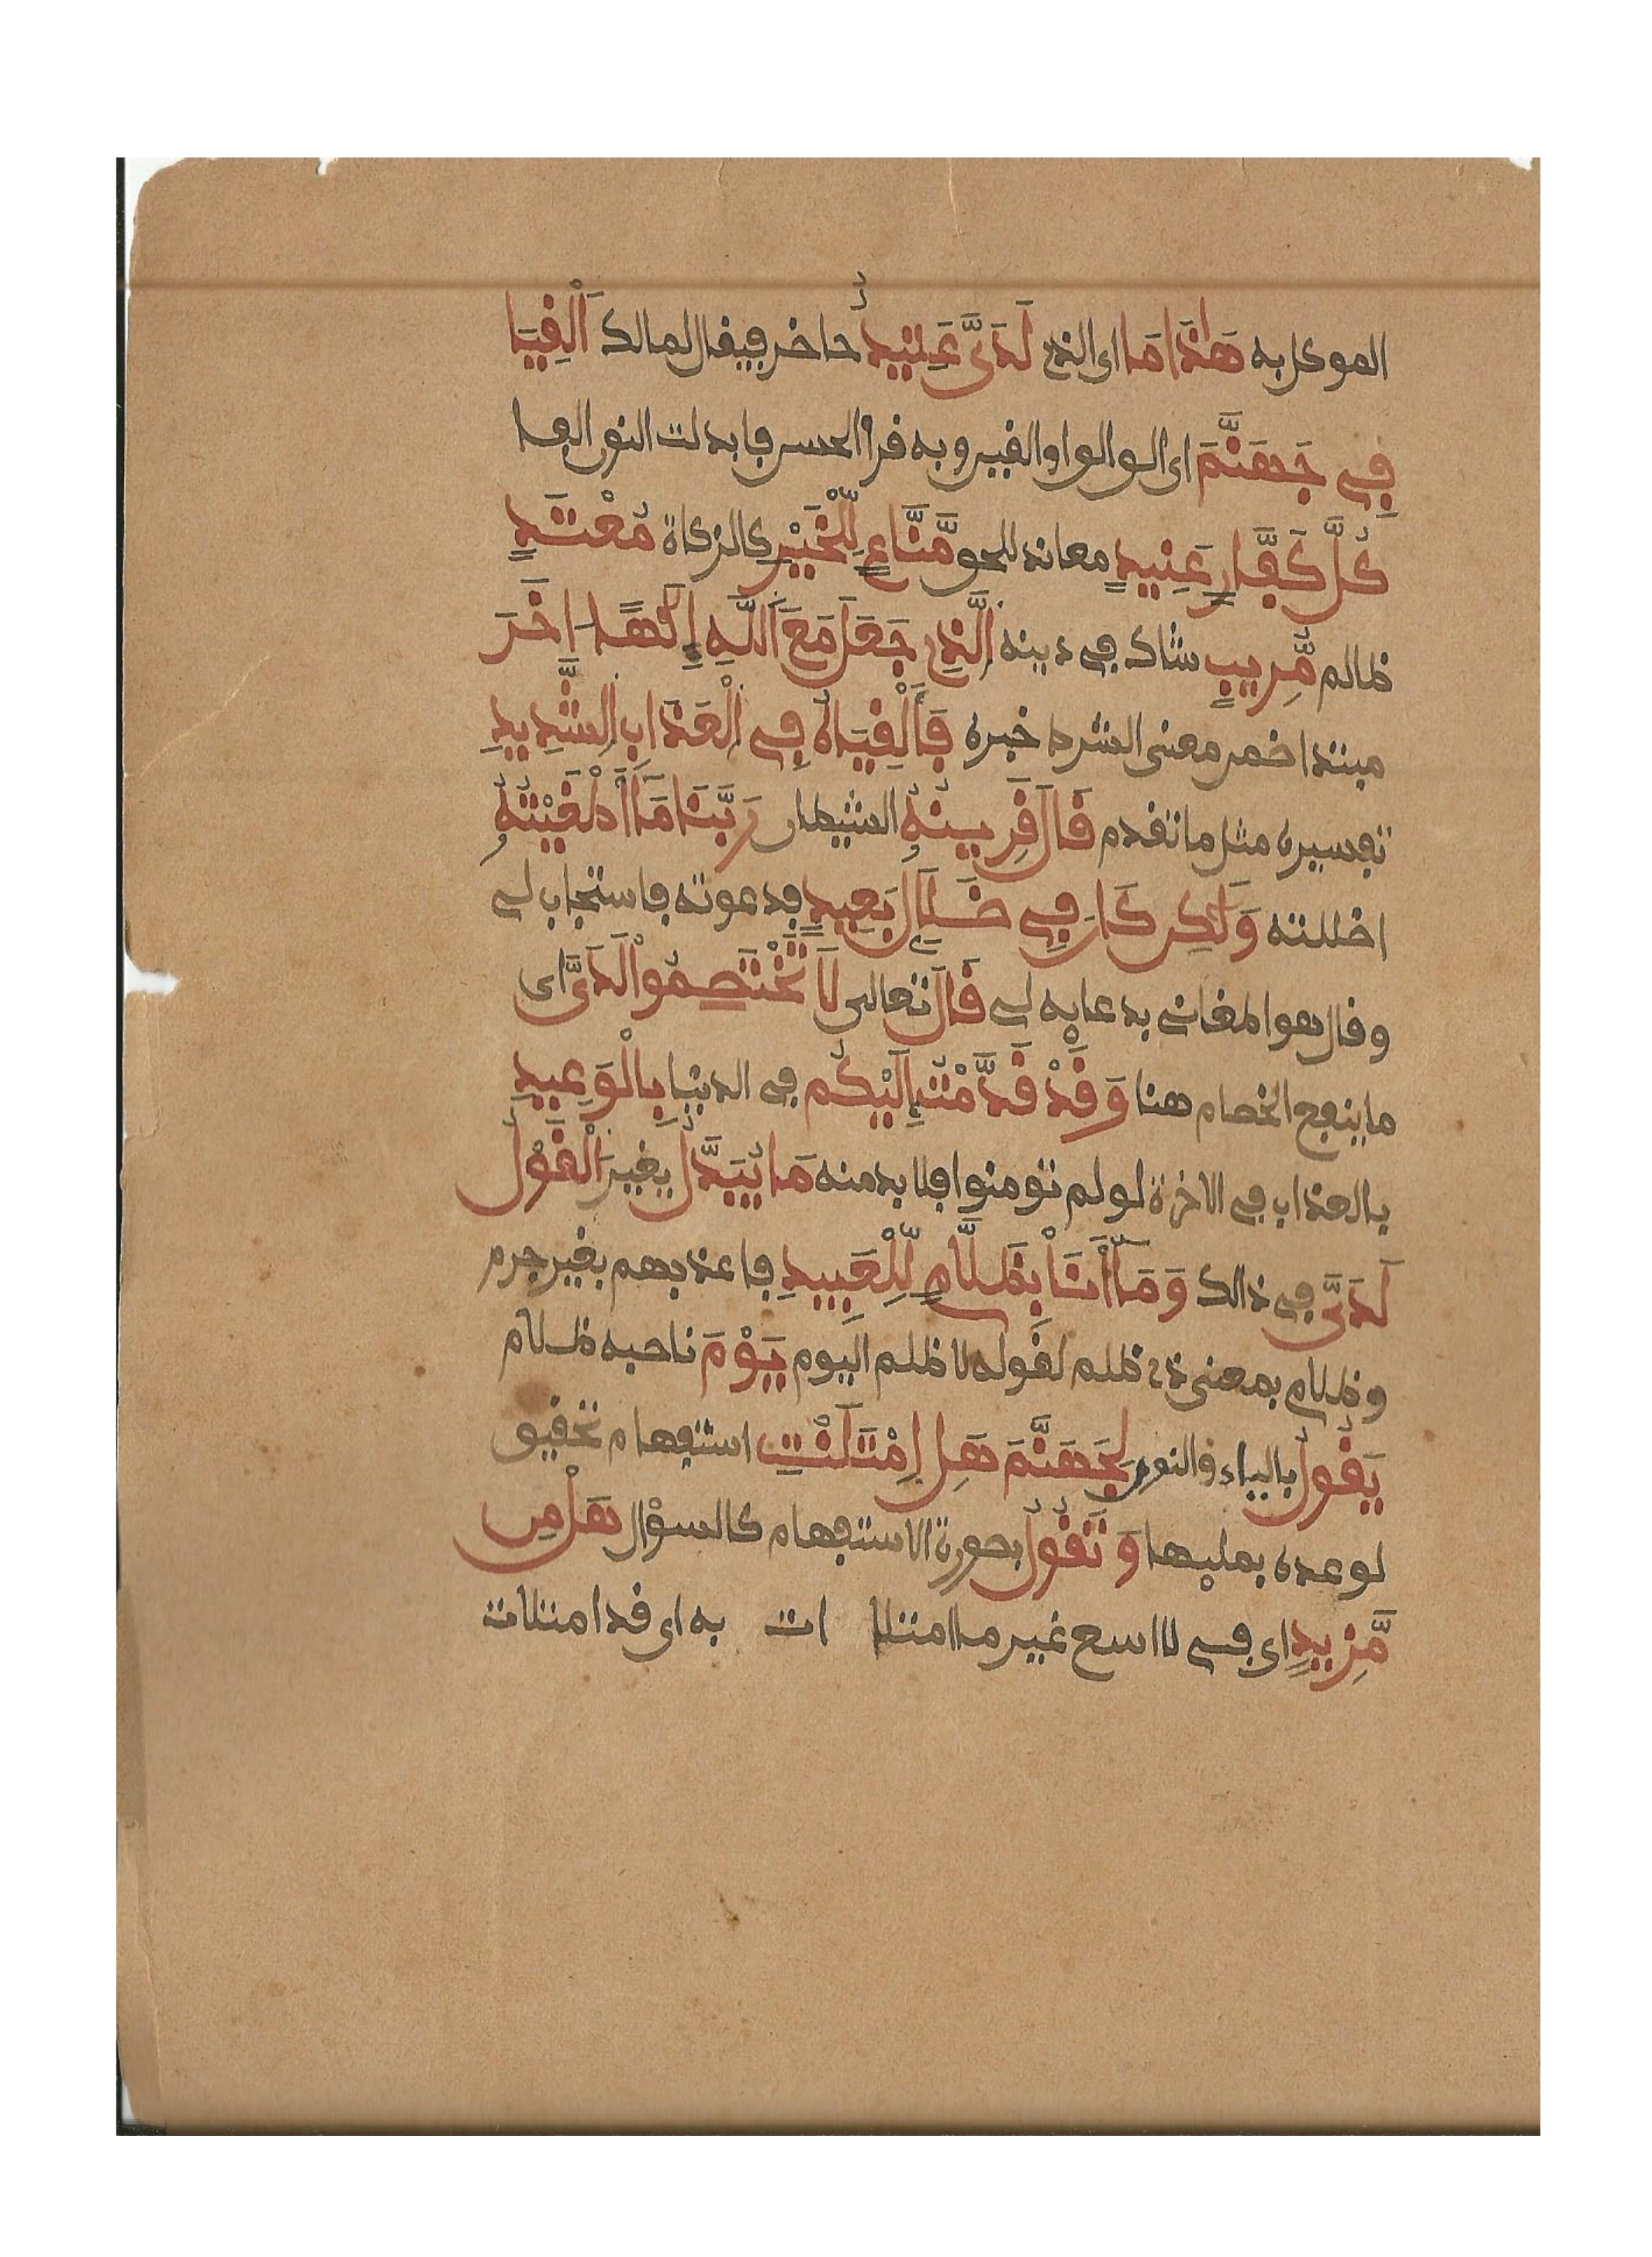 الموكل به هَٰذَا مَا اى الذى لَدَىَّ عَتِيدٌ حاضر فيقال لمالك أَلْقِيَا
فِى جَهَنَّمَ اى الو الو او القين وبه قرأ الحسن فابدلت النون الفا
كُلَّ كَفَّارٍ عَنِيدٍ معاند للحق مَّنَّاعٍ لِّلْخَيْرِ كالزكاة مُعْتَدٍ
ظالم مُّرِيبٍ شاك فى دينه اِلَّذِى جَعَلَ مَعَ اَللَّهِ إِلَٰهًا اخَرَ
مبتدا ضمر معنى الشرط خبره فَأَلْقِيَاهُ فِى اِلْعَذَابِ اِلشَّدِيدِ
تفسيره مثل ما تقدم قَالَ قَرِينُهُ الشيطان رَبَّنَا مَا أَطْغَيْتُهُ
اضللته وَلَٰكِن كَانَ فِى ضَلَٰلٍ بَعِيدٍ فدعوته فاستجاب لى
وقال هو اطغانى بدعايه لى قَالَ تعالى لَا تَخْتَصِمُواْ لَدَىَّ اى
ما ينفع الخصام هنا وَقَدْ قَدَّمْتُ إِلَيْكُم فى الدنيا بِالْوَعِيدِ
بالعذاب فى الاخرة لو لم تومنوا فلا بد منه مَا يُبَدَّلُ يغير اَلْقَوْلُ
لَدَىَّ فى ذالك وَمَا أَنَا بِظَلَّامٍ لِّلْعَبِيدِ فاعذبهم بغير جرم
وظلام بمعنى ذى ظلم لقوله لا ظلم اليوم يَوْمَ ناصبه ظلام
يَقُولُ بالياء والنون لِجَهَنَّمَ هَلِ اِمْتَلَأْتِ استفهام تحقيق
لوعده بمليها وَتَقُولُ بصورة الاستفهام كالسؤال هَلْ مِن
مَّزِيدٍ اى فى لا اسع غير ما امتلا ات به اى قد امتلات